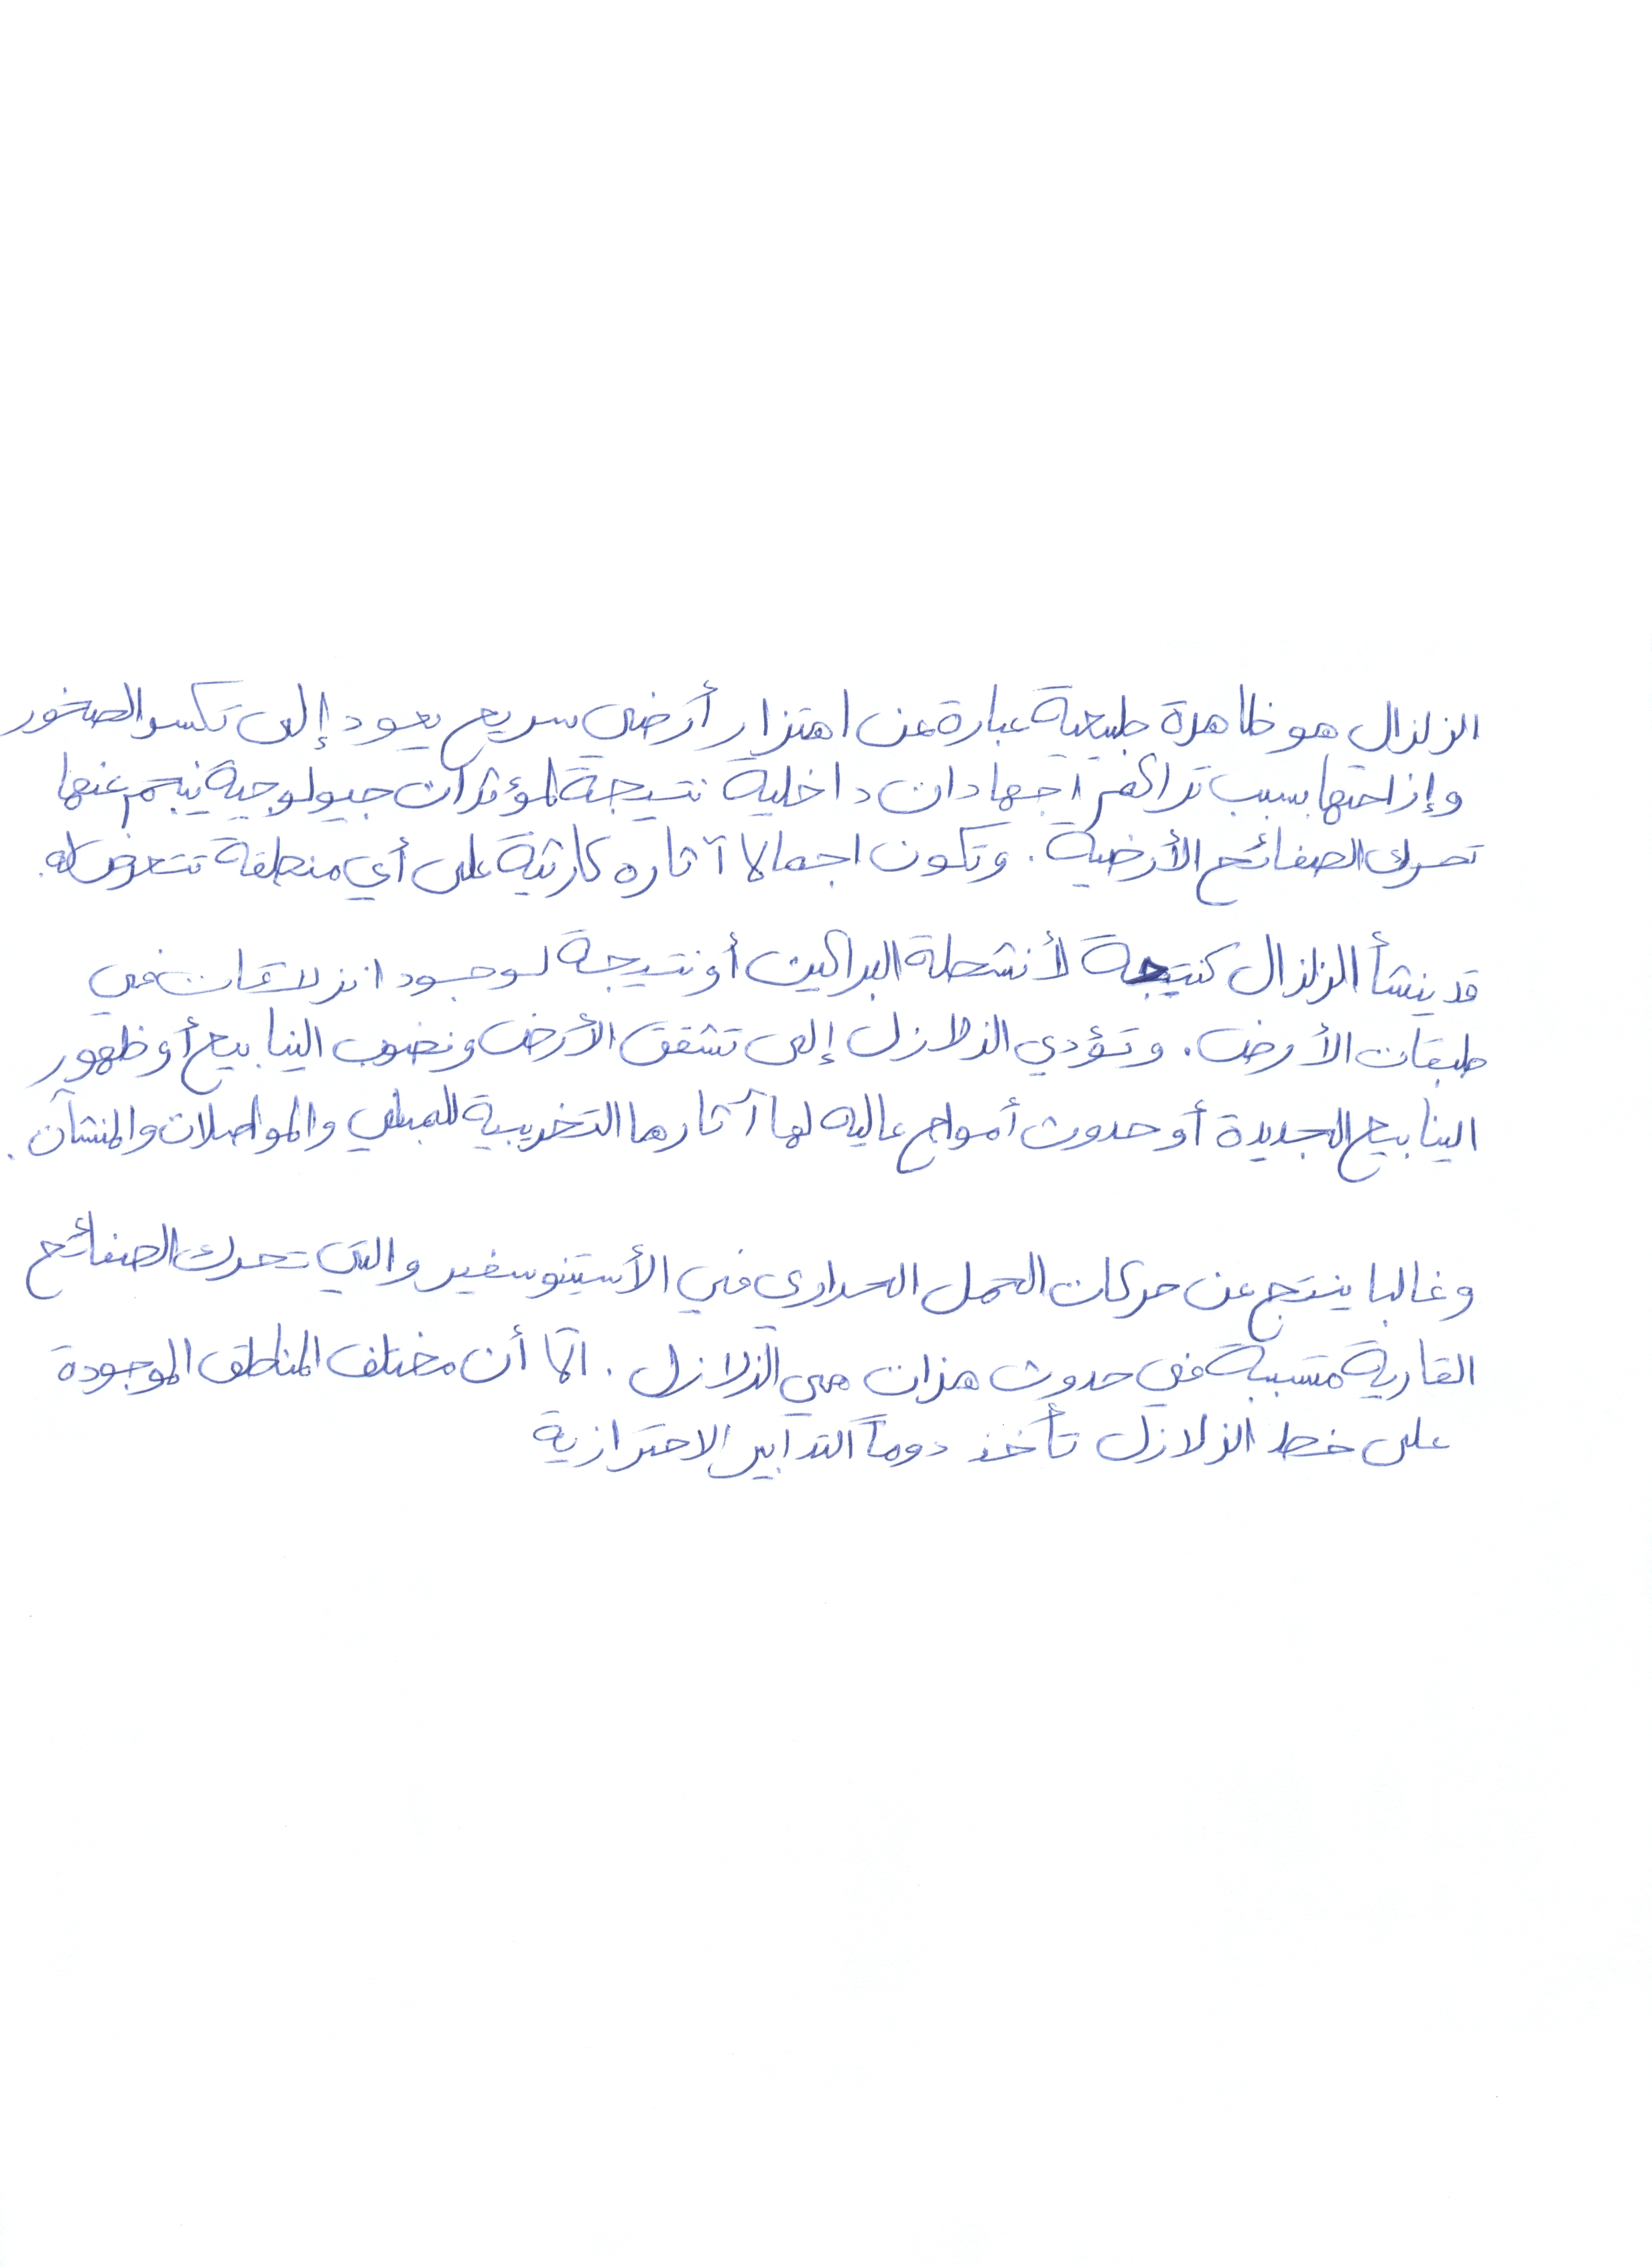 الزلزال هو ظاهرة طبيعية عبارة عن اهتزاز أرضي سريع يعود إلى تكسر الصخور
وإزاحتها بسبب تراكم اجهادات داخلية نتيجة لمؤثرات جيولوجية ينجم عنها
تحرك الصفائح الأرضية. وتكون اجمالا آثاره كارثية على أي منطقة تتعرض له.
قد ينشأ الزلزال كنتيجة لأنشطة البراكين أو نتيجة لوجود انزلاقات في
طبقات الأرض. وتؤدي الزلازل إلى تشقق الأرض ونضوب الينابيع أو ظهور
الينابيع الجديدة أو حدوث أمواج عاليه لها آثارها التخريبية للمباني والمواصلات والمنشآت.
وغالبا ينتج عن حركات الحمل الحراري في الأستينوسفير والتي تحرك الصفائح
القارية متسببة في حدوث هزات هي الزلازل. كما أن مختلف المناطق الموجودة
على خط الزلازل تأخذ دوماً التدابير الاحترازية